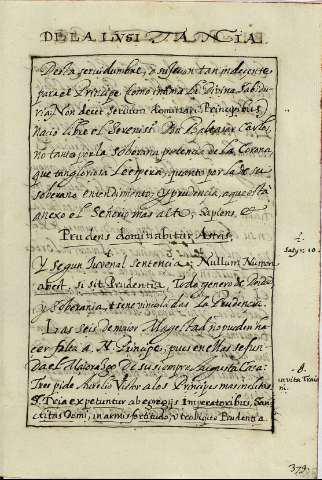 DE LA LVSITANIA
De la servidumbre,
para el Principe, como
Non decet servum dominari Principibus,
nacio libre el Serenisº. Dn Baltasar Carlos,
no tanto por la soberana potencia de la Corona,
que tan gloriosa le espera, quanto por la de su
soberano entendimiento, y prudencia, a que está
anexo el Señorio mas alto, Sapiens, &
Prudens dominabitur Astris.
Y segun Juvenal sentencia, Nullum Numen
abest, si sit Prudentia. Todo genero de
y soberania, tiene vinculadas la Prudencia.
Las seis de maior Magestad no pueden ha
cer falta a N. Principe, pues en ellas se fun
da el Maiorazgo de su siempre Augusta Casa:
Tres pide Aurelio Victor a los Principes mas inclitos,
Tria expetuntur ab egregijs Imperatoribus, San
ctitas Domi, in armis fortitudo, utrobique Prudentia.
Satyr. 10.
8.
in vita Traia
379.